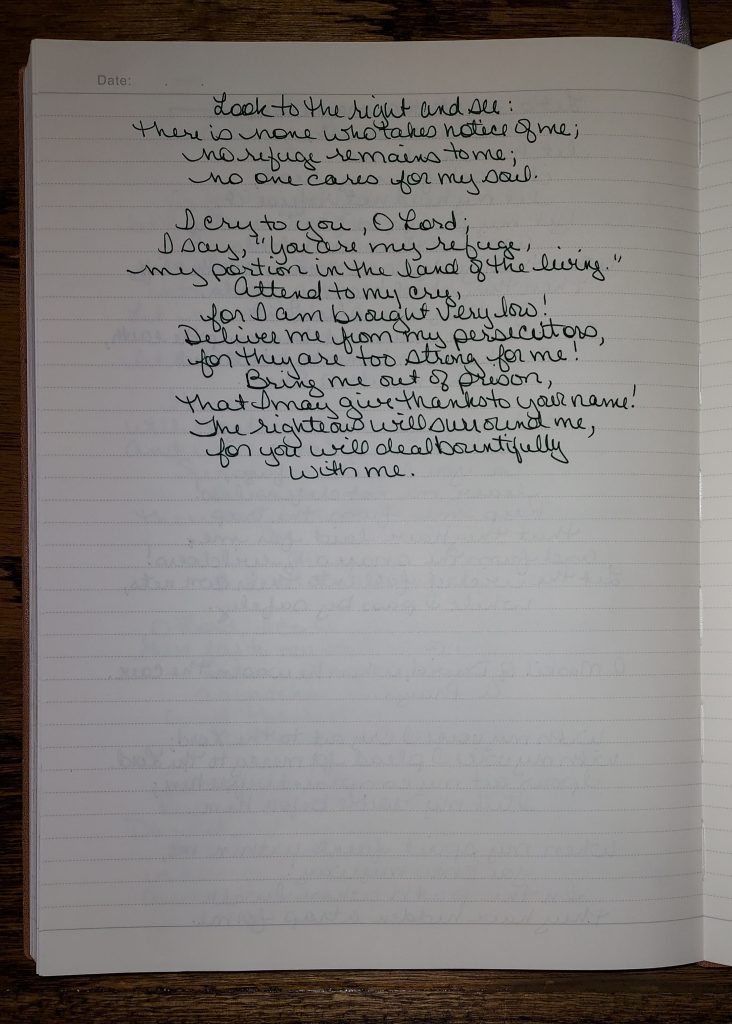 Date:
Look to the right and see:
there is none who takes notice of me;
no refuge remains to me;
no one cares for my soul.
I cry to you, O Lord;
I say, "You are my refuge,
my portion in the land of the living."
Attend to my cry,
for I am brought very low!
Deliver me from my persecutors,
for they are too strong for me!
Bring me out of prison,
that I may give thanks to your name!
The righteous will surround me,
for you will deal bountifully
with me.